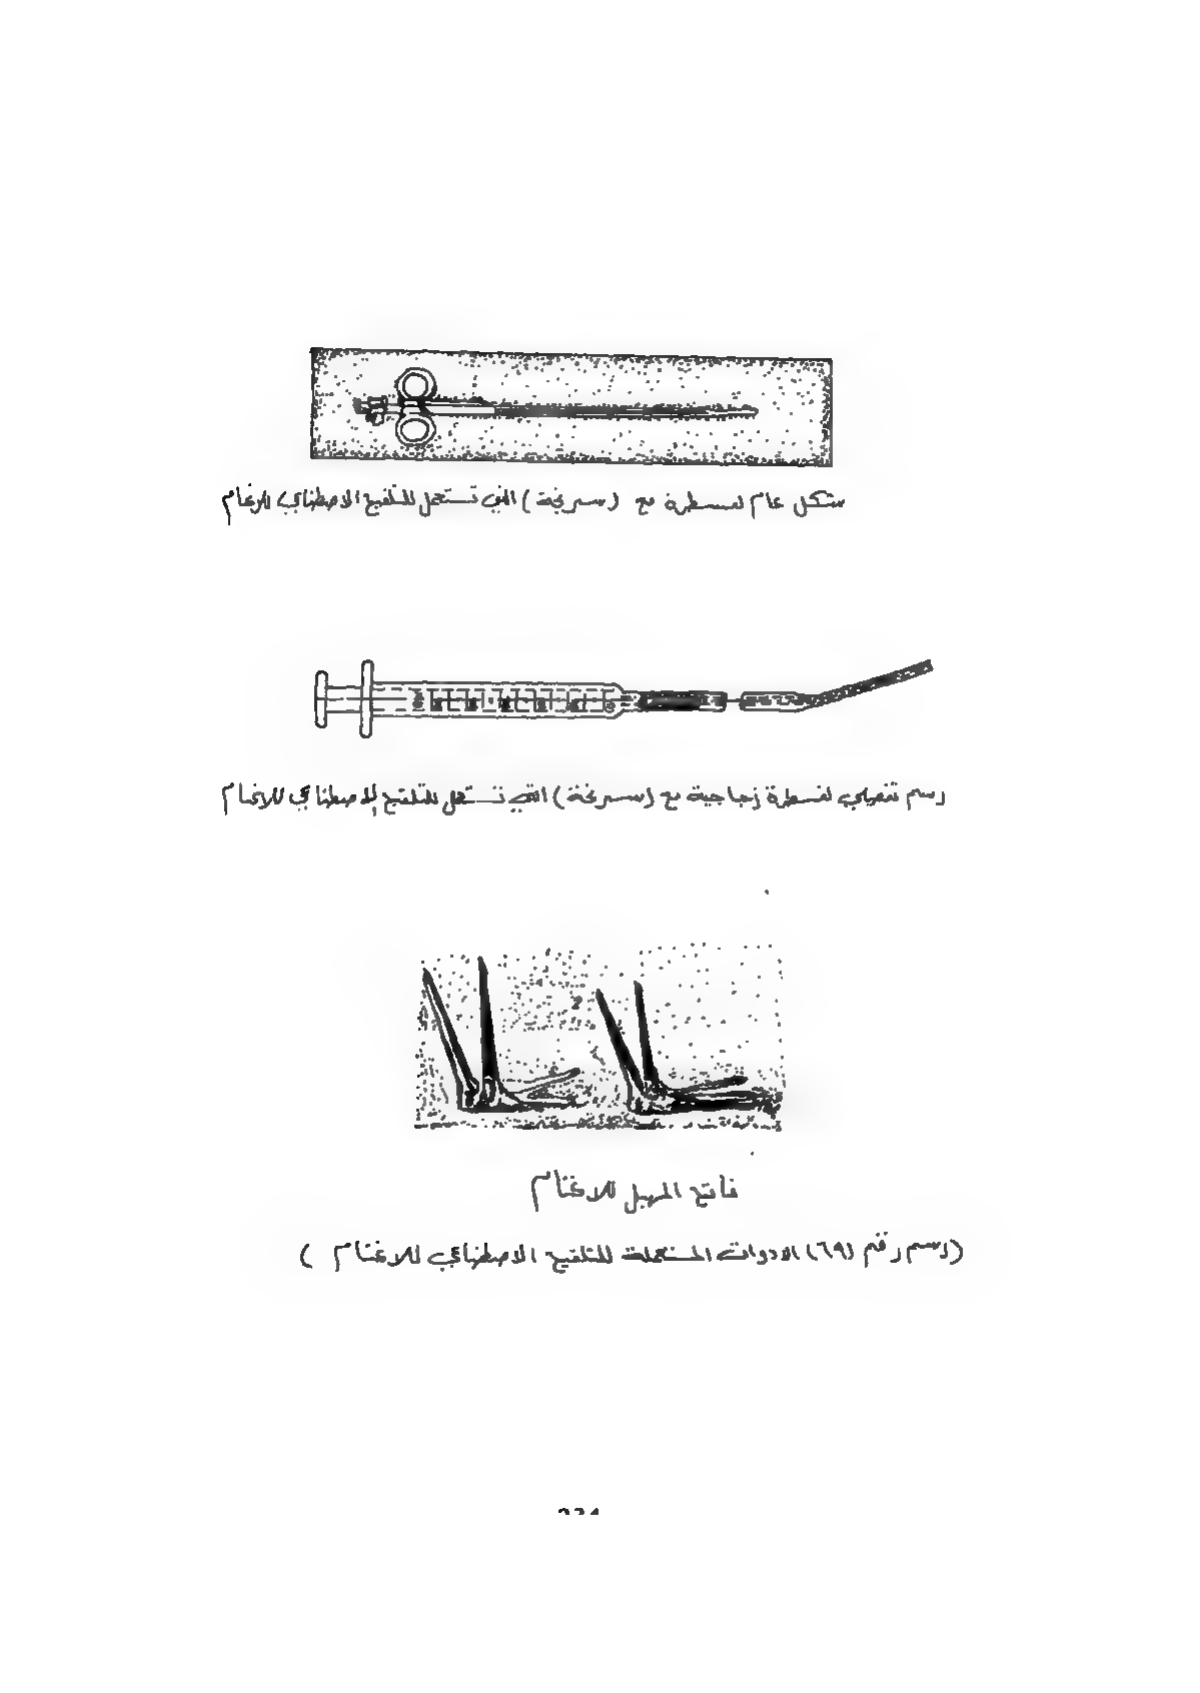 شكل عام لقسطرة مع (سرنجة) التي تستعمل للتلقيح الاصطناعي للاغنام
رسم تفصيلي لقسطرة زجاجية مع (سرنجة) التي تستعمل للتلقيح الاصطناعي للاغنام
فاتح المهبل للاغنام
(رسم رقم (٦٩) الادوات المستعملة للتلقيح الاصطناعي للاغنام )